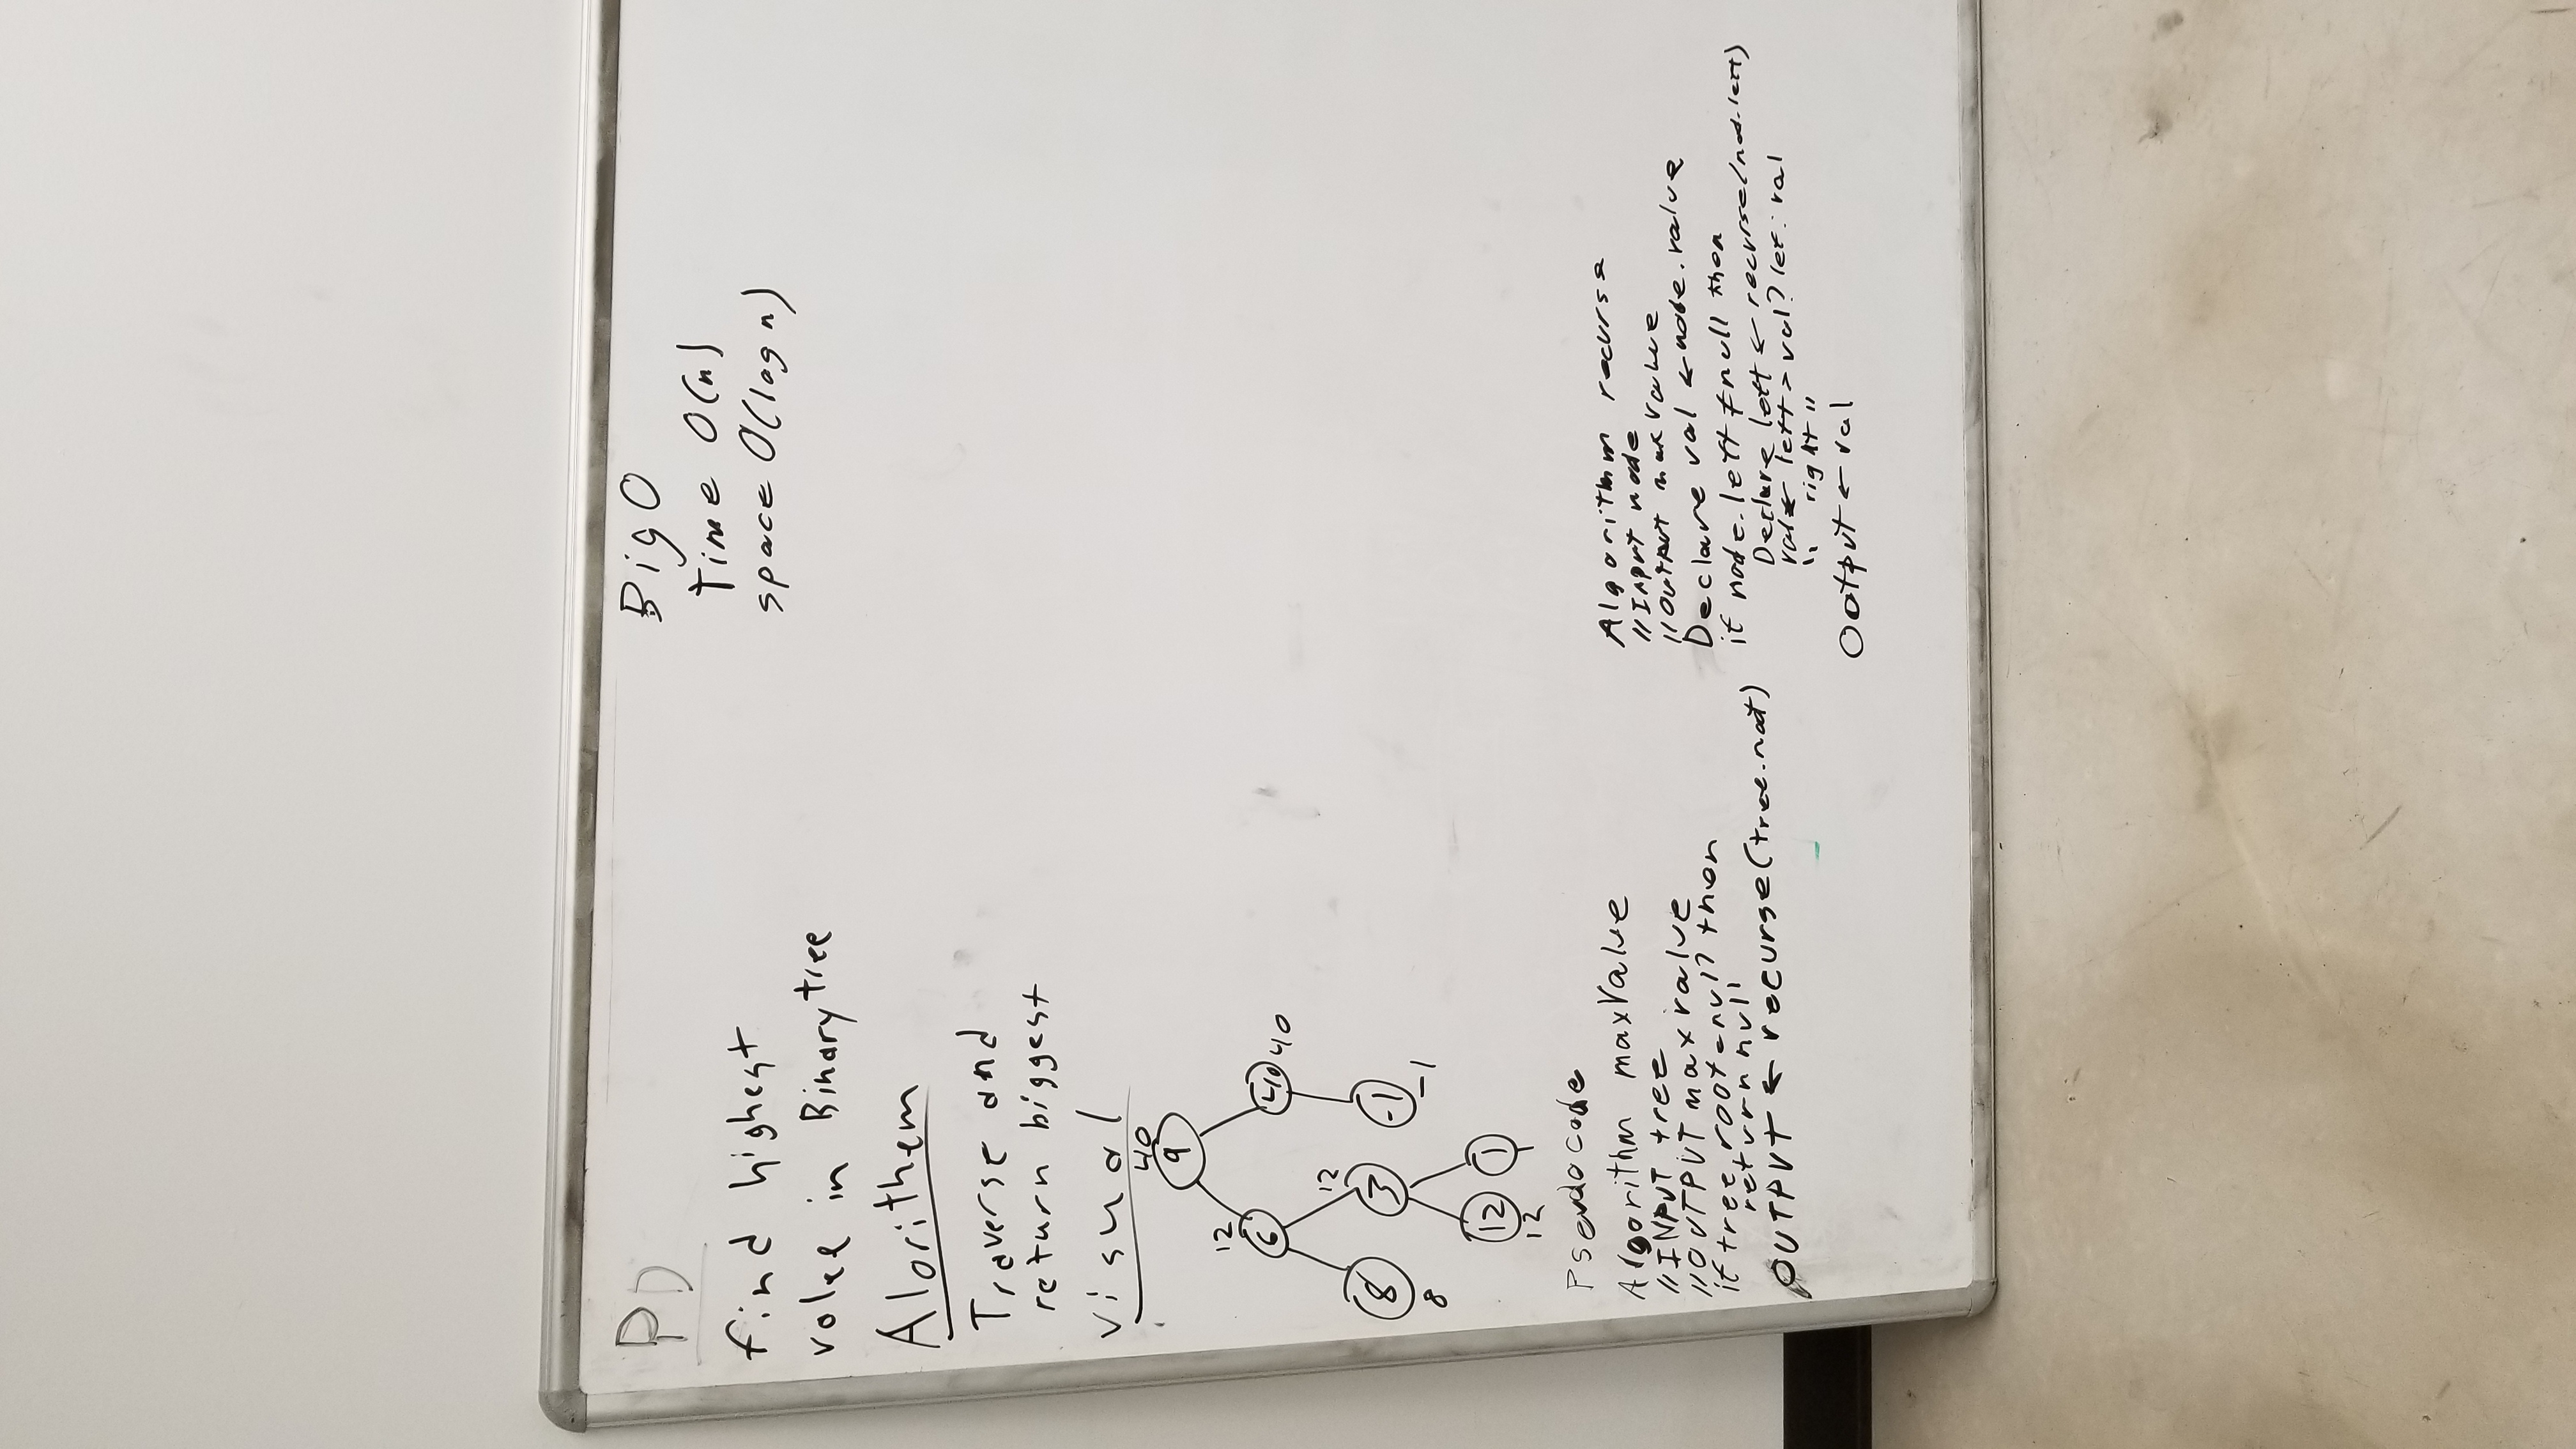 PD
find highest
value in Binary tree
Alorithem
Traverse and
return biggest
visual
40
9
12
6
40 40
12
8 3 -1
8 -1
12 1
12 1
Pseudocode
Algorithm maxValue
//INPUT tree
//OUTPUT maxvalue
if tree.root=null then
return null
OUTPUT ← recurse(tree.root)
Big O
Time O(n)
space O(log n)
Algorithm recurse
//Input node
//Output maxValue
Declare val ← node.value
if node.left ≠ null then
Declare left ← recurse(nod.left)
val ← left > val? lef: val
" right "
Ootput ← val